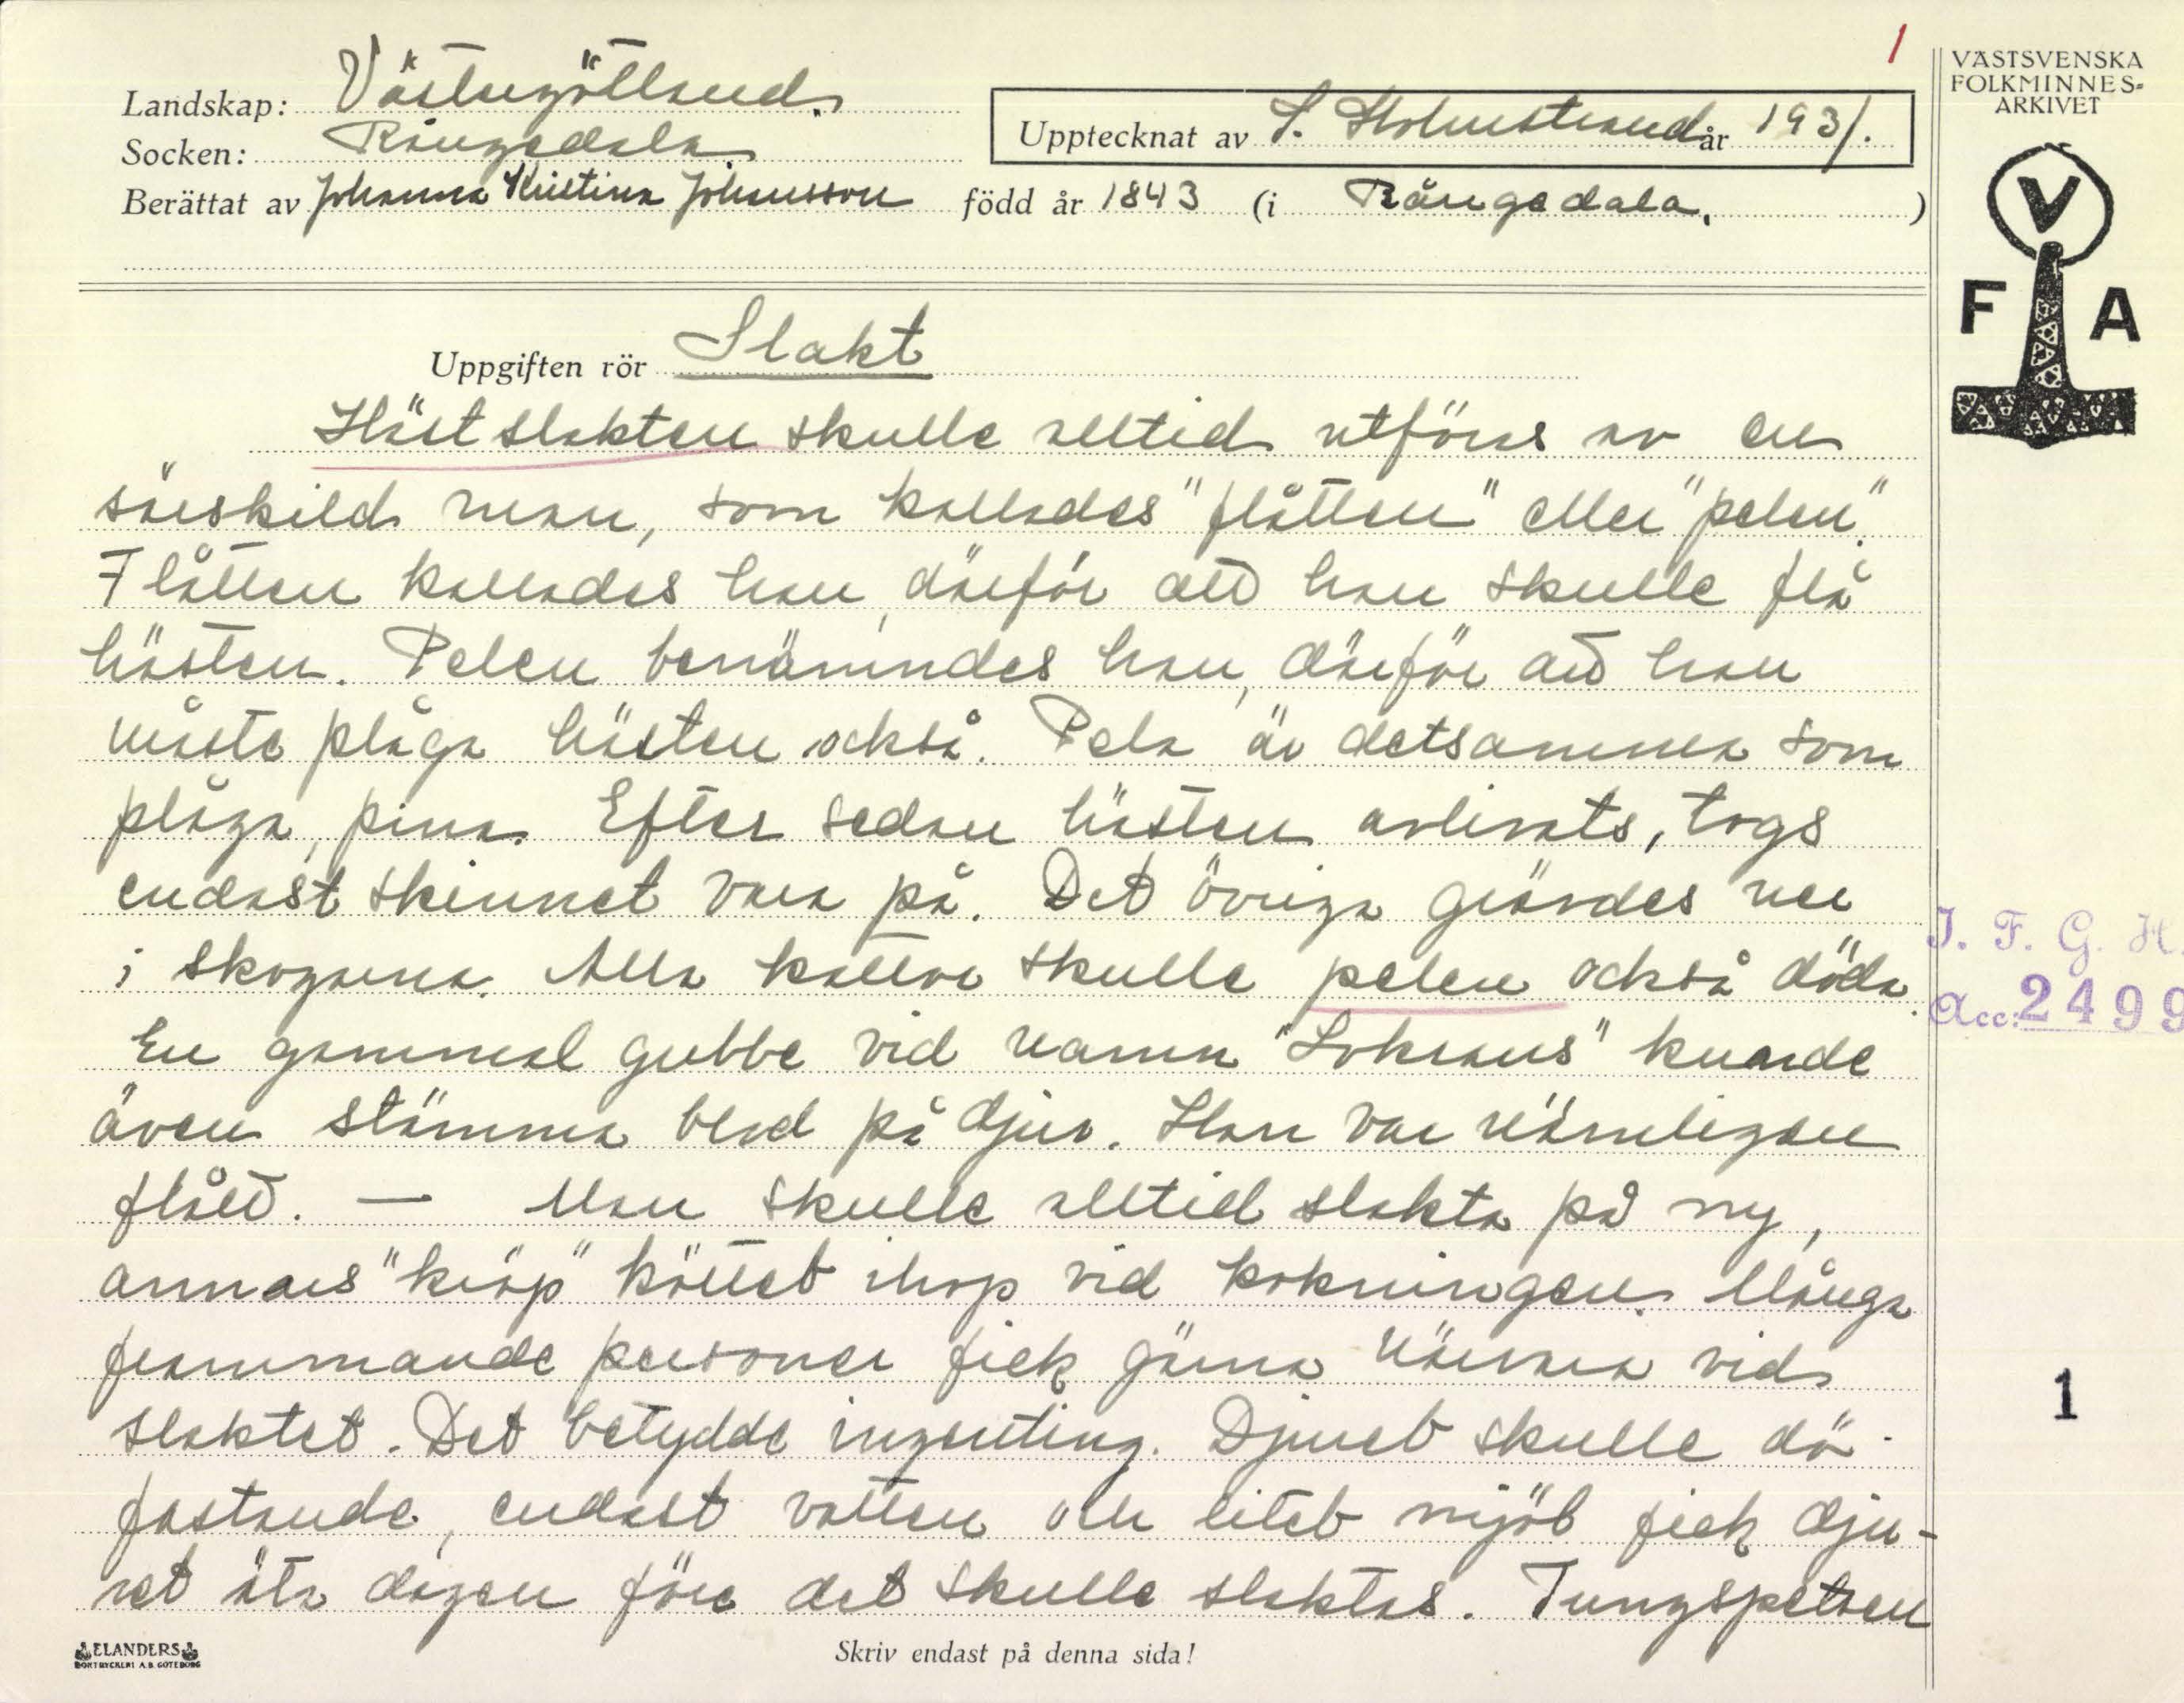 1
Landskap: Västergötland.
Socken: Rångedala.
Upptecknat av S. Holmstrand år 1931.
Berättat av Johanna Kristina Johansson född år 1843 (i Rångedala. )
VÄSTSVENSKA
FOLKMINNES-
ARKIVET
V
F A
Uppgiften rör Slakt
Hästslakten skulle alltid utföras av en
särskild man, som kallades "flåtten" eller "pelen".
Flåtten kallades han, därför att han skulle flå
hästen. Pelen benämndes han, därför att han
måste plåga hästen också. Pela är detsamma som
plåga, pina. Efter sedan hästen avlivats, togs
endast skinnet vara på. Det övriga grävdes ner
i skogarna. Alla kattor skulle pelen också döda.
En gammal gubbe vid namn "Lokraus" kunde
även stämma blod på djur. Han var nämligen
flått. — Man skulle alltid slakta på ny,
annars "kröp" köttet ihop vid kokningen. Många
främmande personer fick gärna närvara vid
slaktet. Det betydde ingenting. Djuret skulle dö
fastande, endast vatten och litet mjöl fick dju-
ret äta dagen före det skulle slaktas. Tungspetsen
I. F. G. H.
Acc: 2499
1
ELANDERS
BOKTRYCKERI A.B. GÖTEBORG
Skriv endast på denna sida!